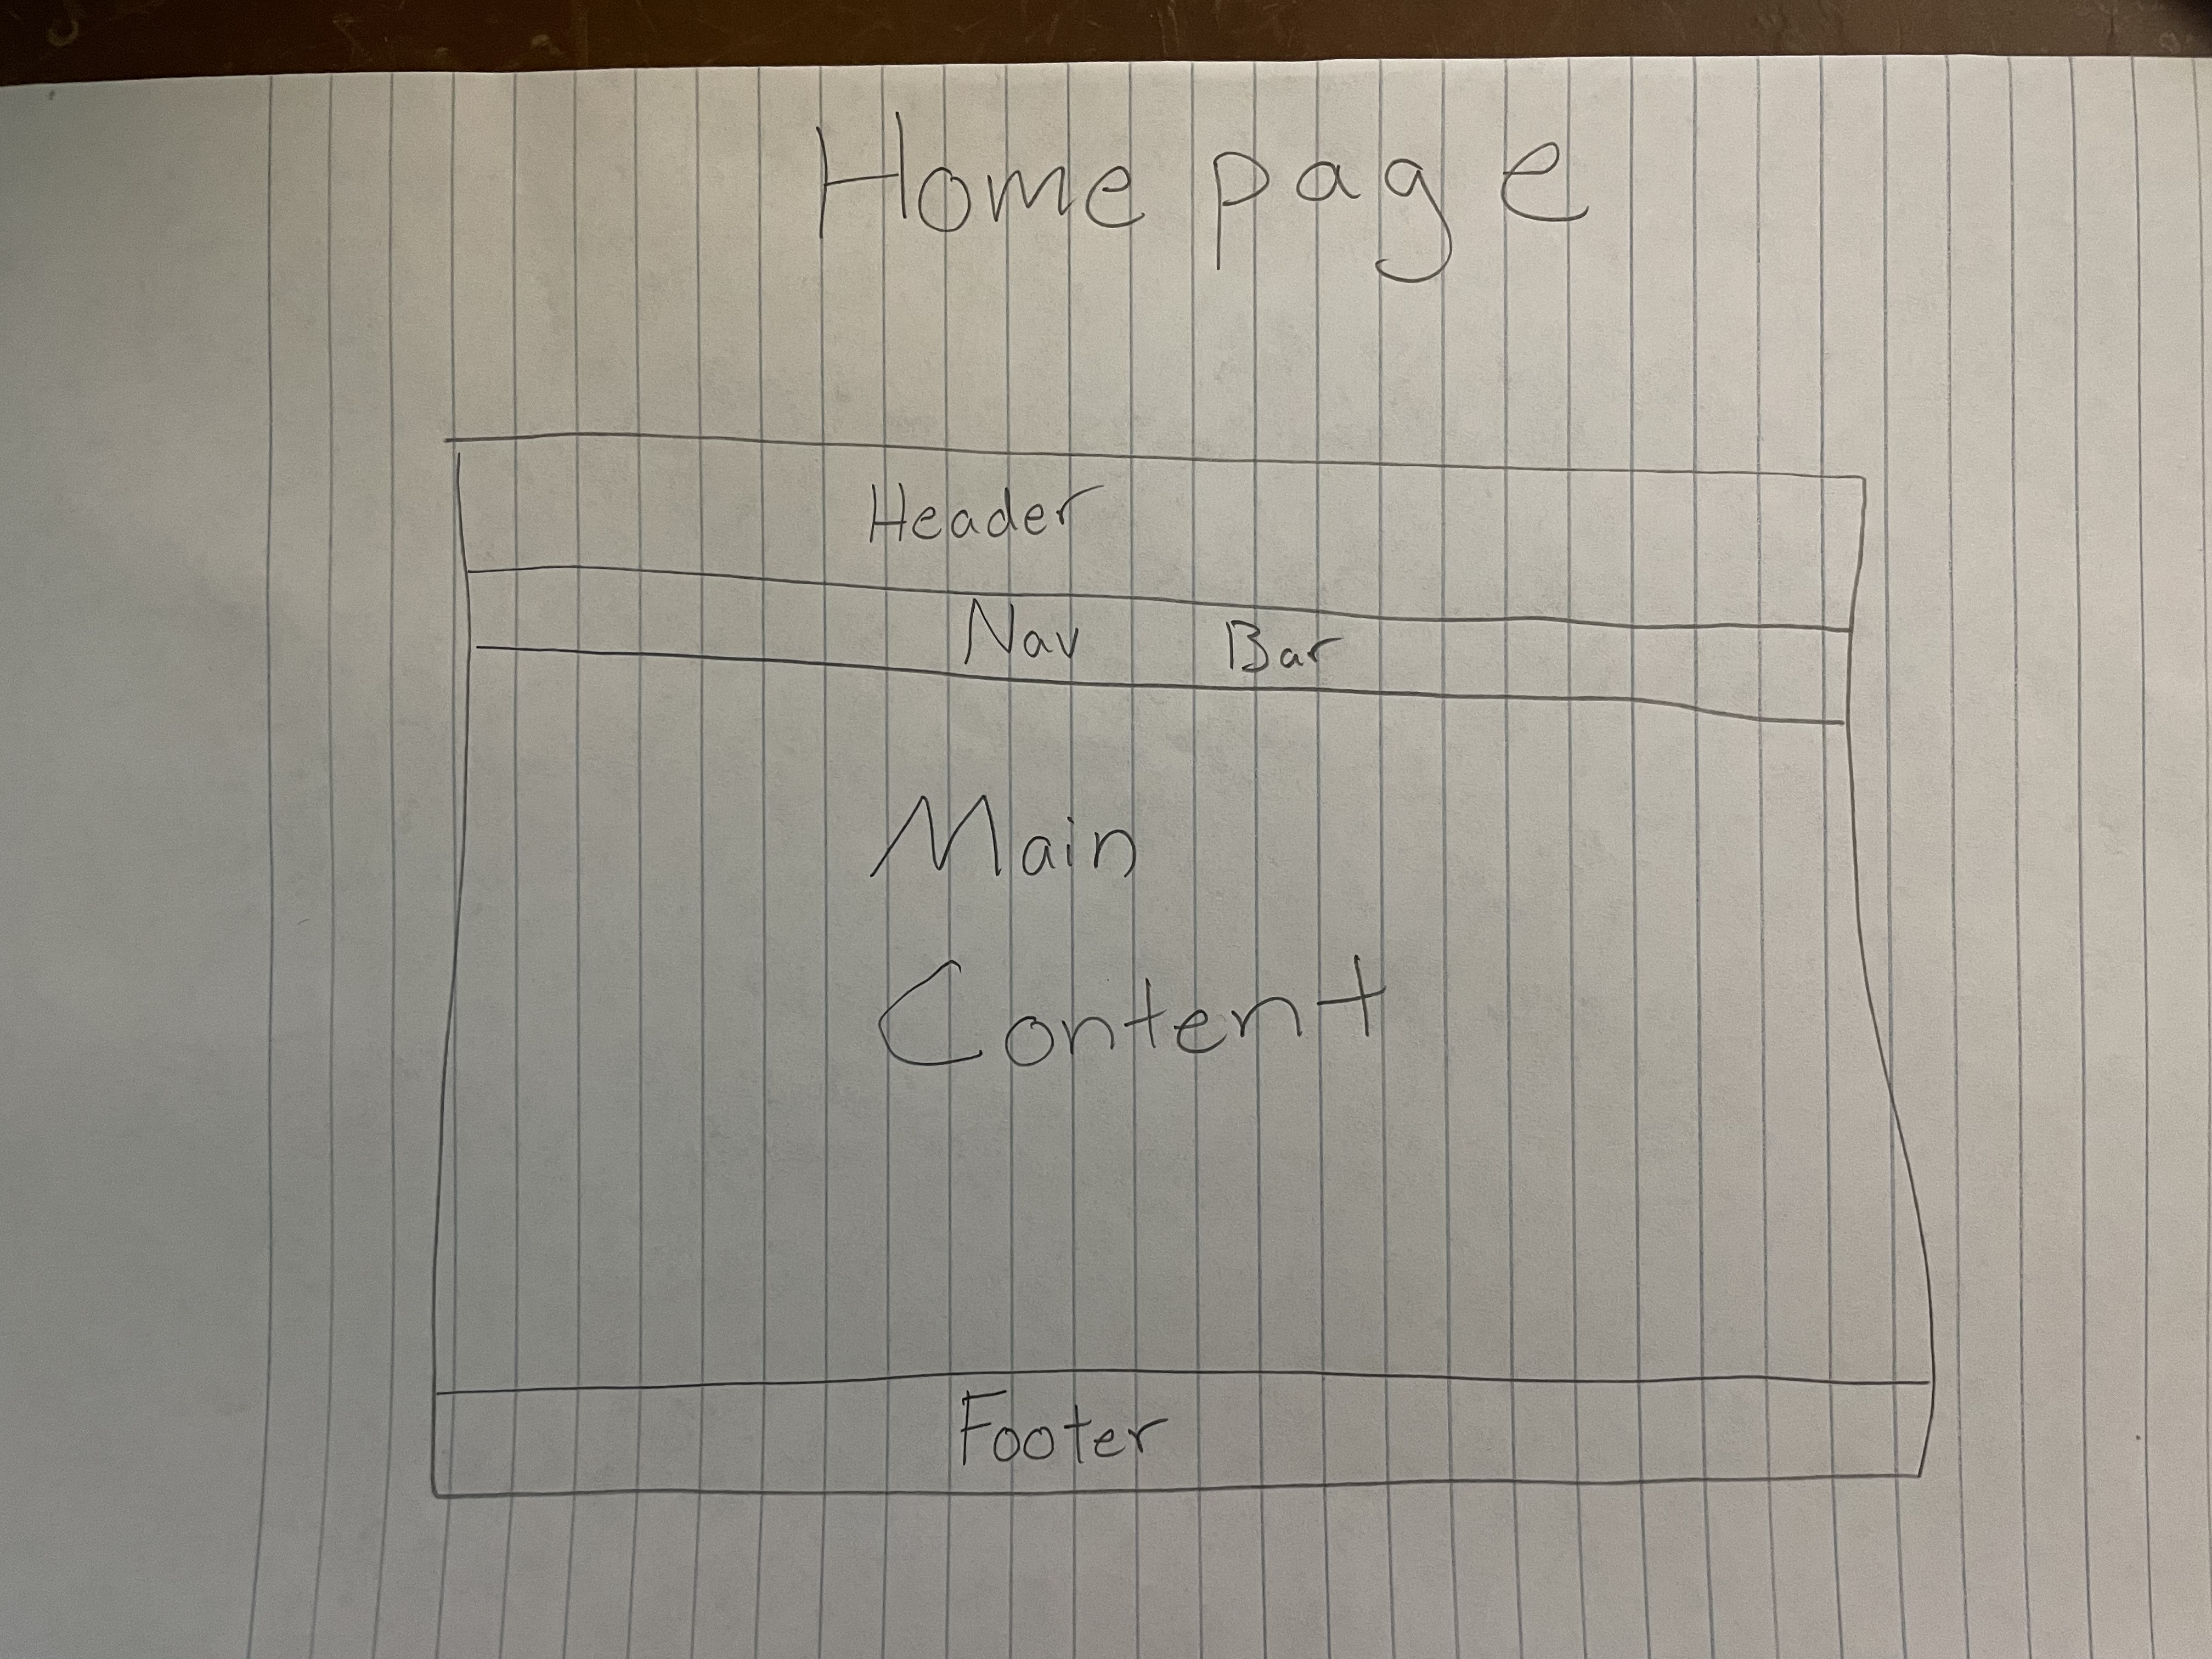 Home page
Header
Nav Bar
Main
Content
Footer